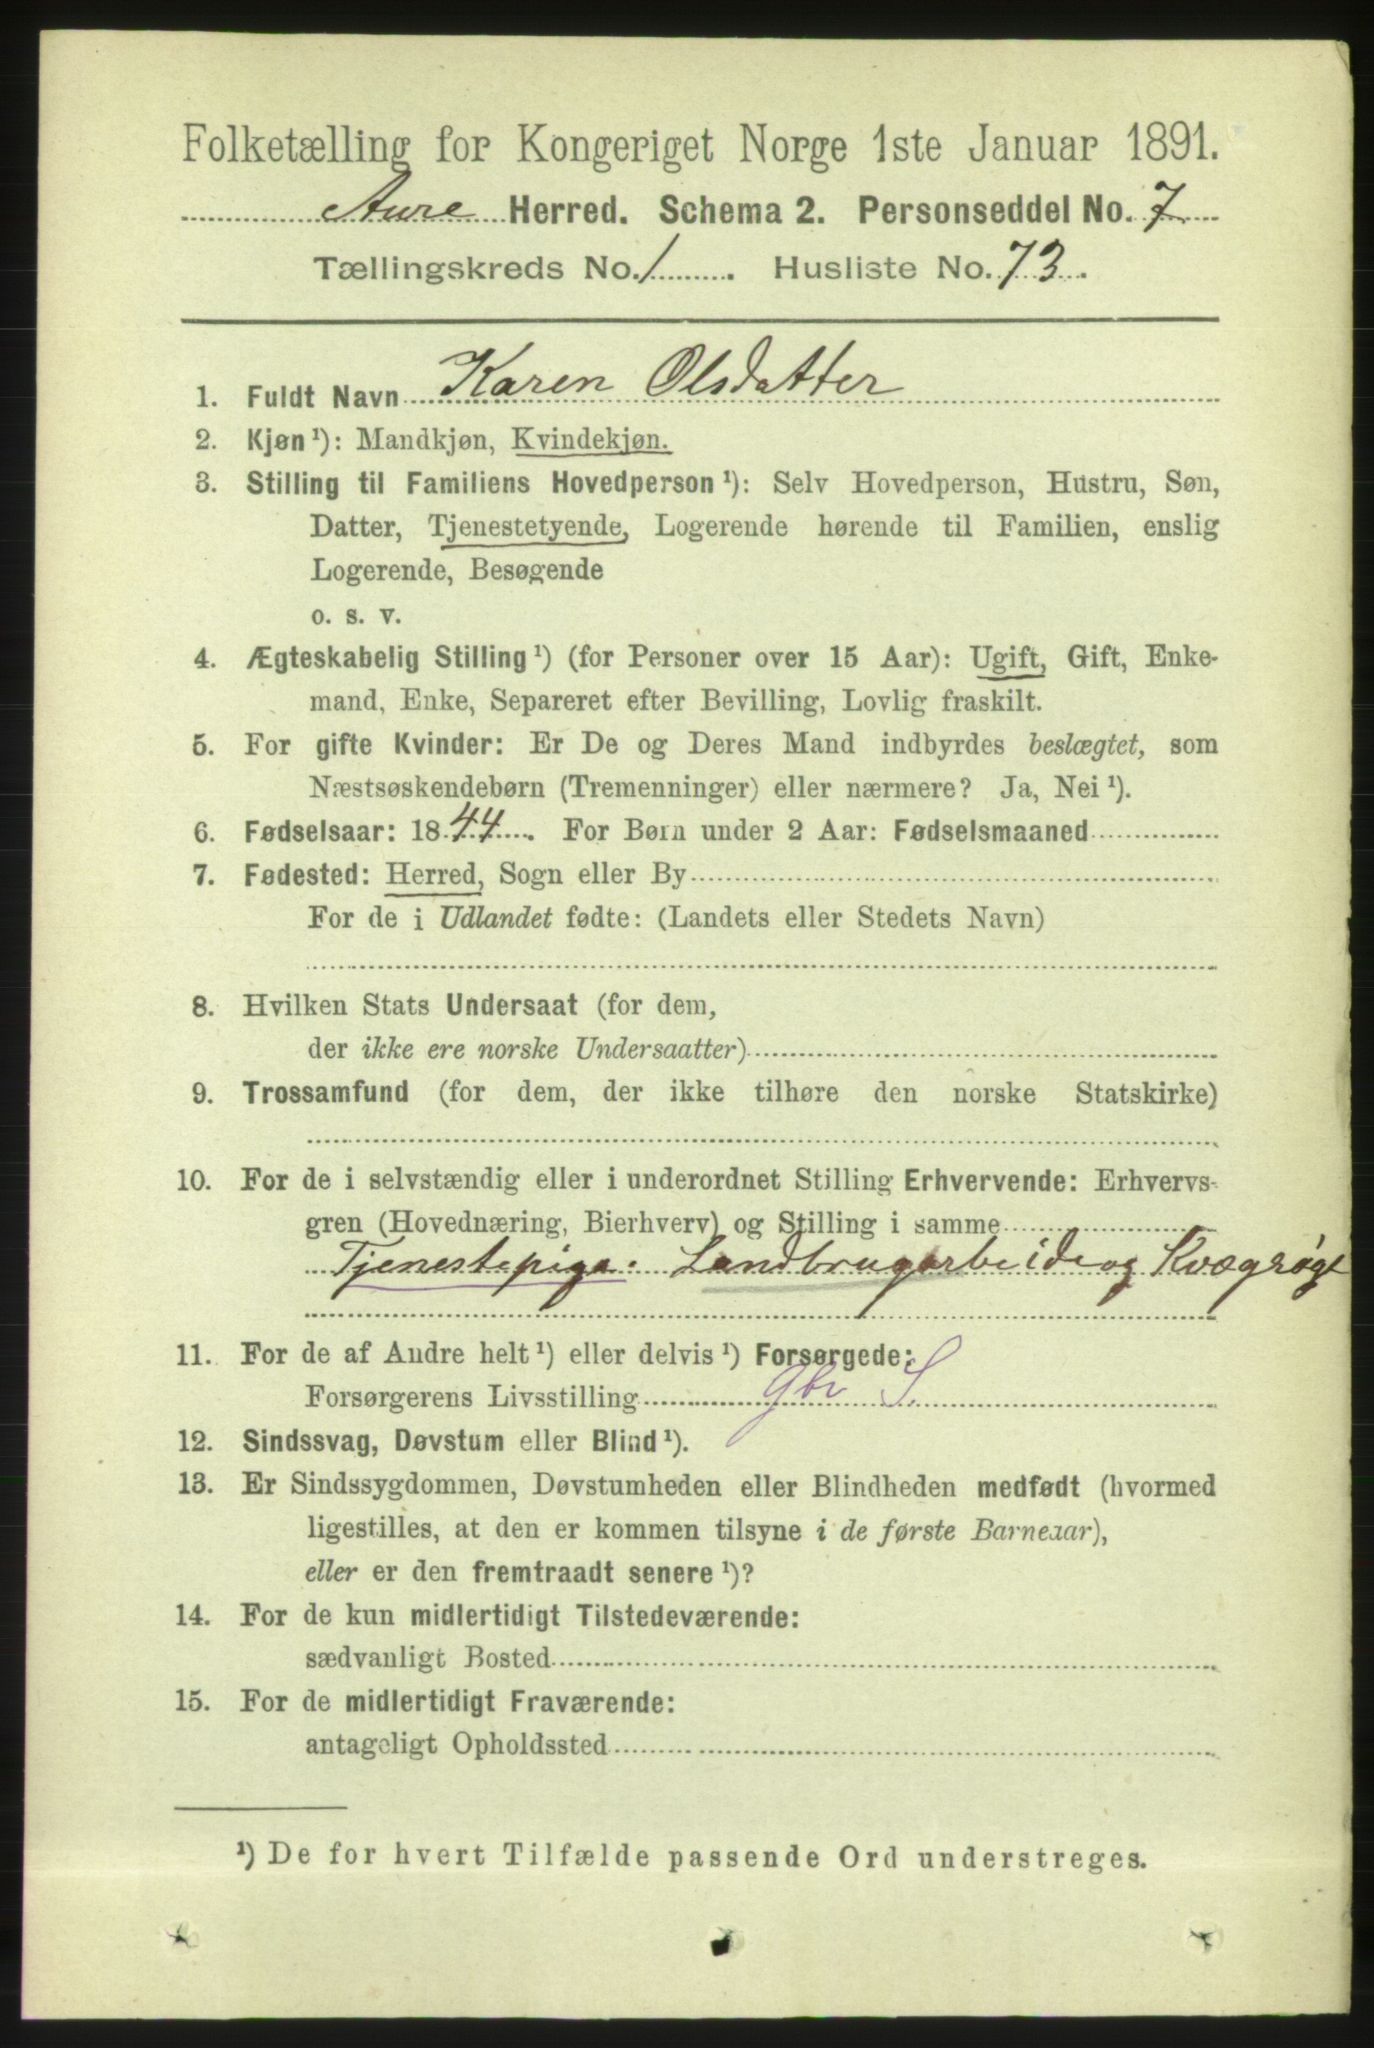 Folketælling for Kongeriget Norge 1ste Januar 1891.
Aure Herred. Schema 2. Personseddel No. 7
Tællingskreds No. 1. Husliste No. 73.
1. Fuldt Navn Karen Olsdatter
2. Kjøn ¹): Mandkjøn, Kvindekjøn.
3. Stilling til Familiens Hovedperson ¹): Selv Hovedperson, Hustru, Søn,
Datter, Tjenestetyende, Logerende hørende til Familien, enslig
Logerende, Besøgende
o. s. v.
4. Ægteskabelig Stilling ¹) (for Personer over 15 Aar): Ugift, Gift, Enke-
mand, Enke, Separeret efter Bevilling, Lovlig fraskilt.
5. For gifte Kvinder: Er De og Deres Mand indbyrdes beslægtet, som
Næstsøskendebørn (Tremenninger) eller nærmere? Ja, Nei ¹).
6. Fødselsaar: 1844. For Børn under 2 Aar: Fødselsmaaned
7. Fødested: Herred, Sogn eller By
For de i Udlandet fødte: (Landets eller Stedets Navn)
8. Hvilken Stats Undersaat (for dem,
der ikke ere norske Undersaatter)
9. Trossamfund (for dem, der ikke tilhøre den norske Statskirke)
10. For de i selvstændig eller i underordnet Stilling Erhvervende: Erhvervs-
gren (Hovednæring, Bierhverv) og Stilling i samme
Tjenestepige. Landbrugarbeide og Kvægrøgt
11. For de af Andre helt ¹) eller delvis ¹) Forsørgede:
Forsørgerens Livsstilling Gbr S.
12. Sindssvag, Døvstum eller Blind ¹).
13. Er Sindssygdommen, Døvstumheden eller Blindheden medfødt (hvormed
ligestilles, at den er kommen tilsyne i de første Barneaar),
eller er den fremtraadt senere ¹)?
14. For de kun midlertidigt Tilstedeværende:
sædvanligt Bosted
15. For de midlertidigt Fraværende:
antageligt Opholdssted
¹) De for hvert Tilfælde passende Ord understreges.